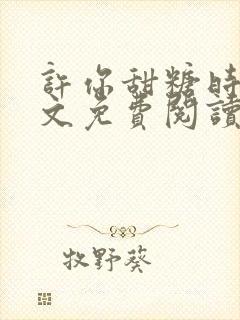 許你甜糖時
文免費閱讀
牧野葵